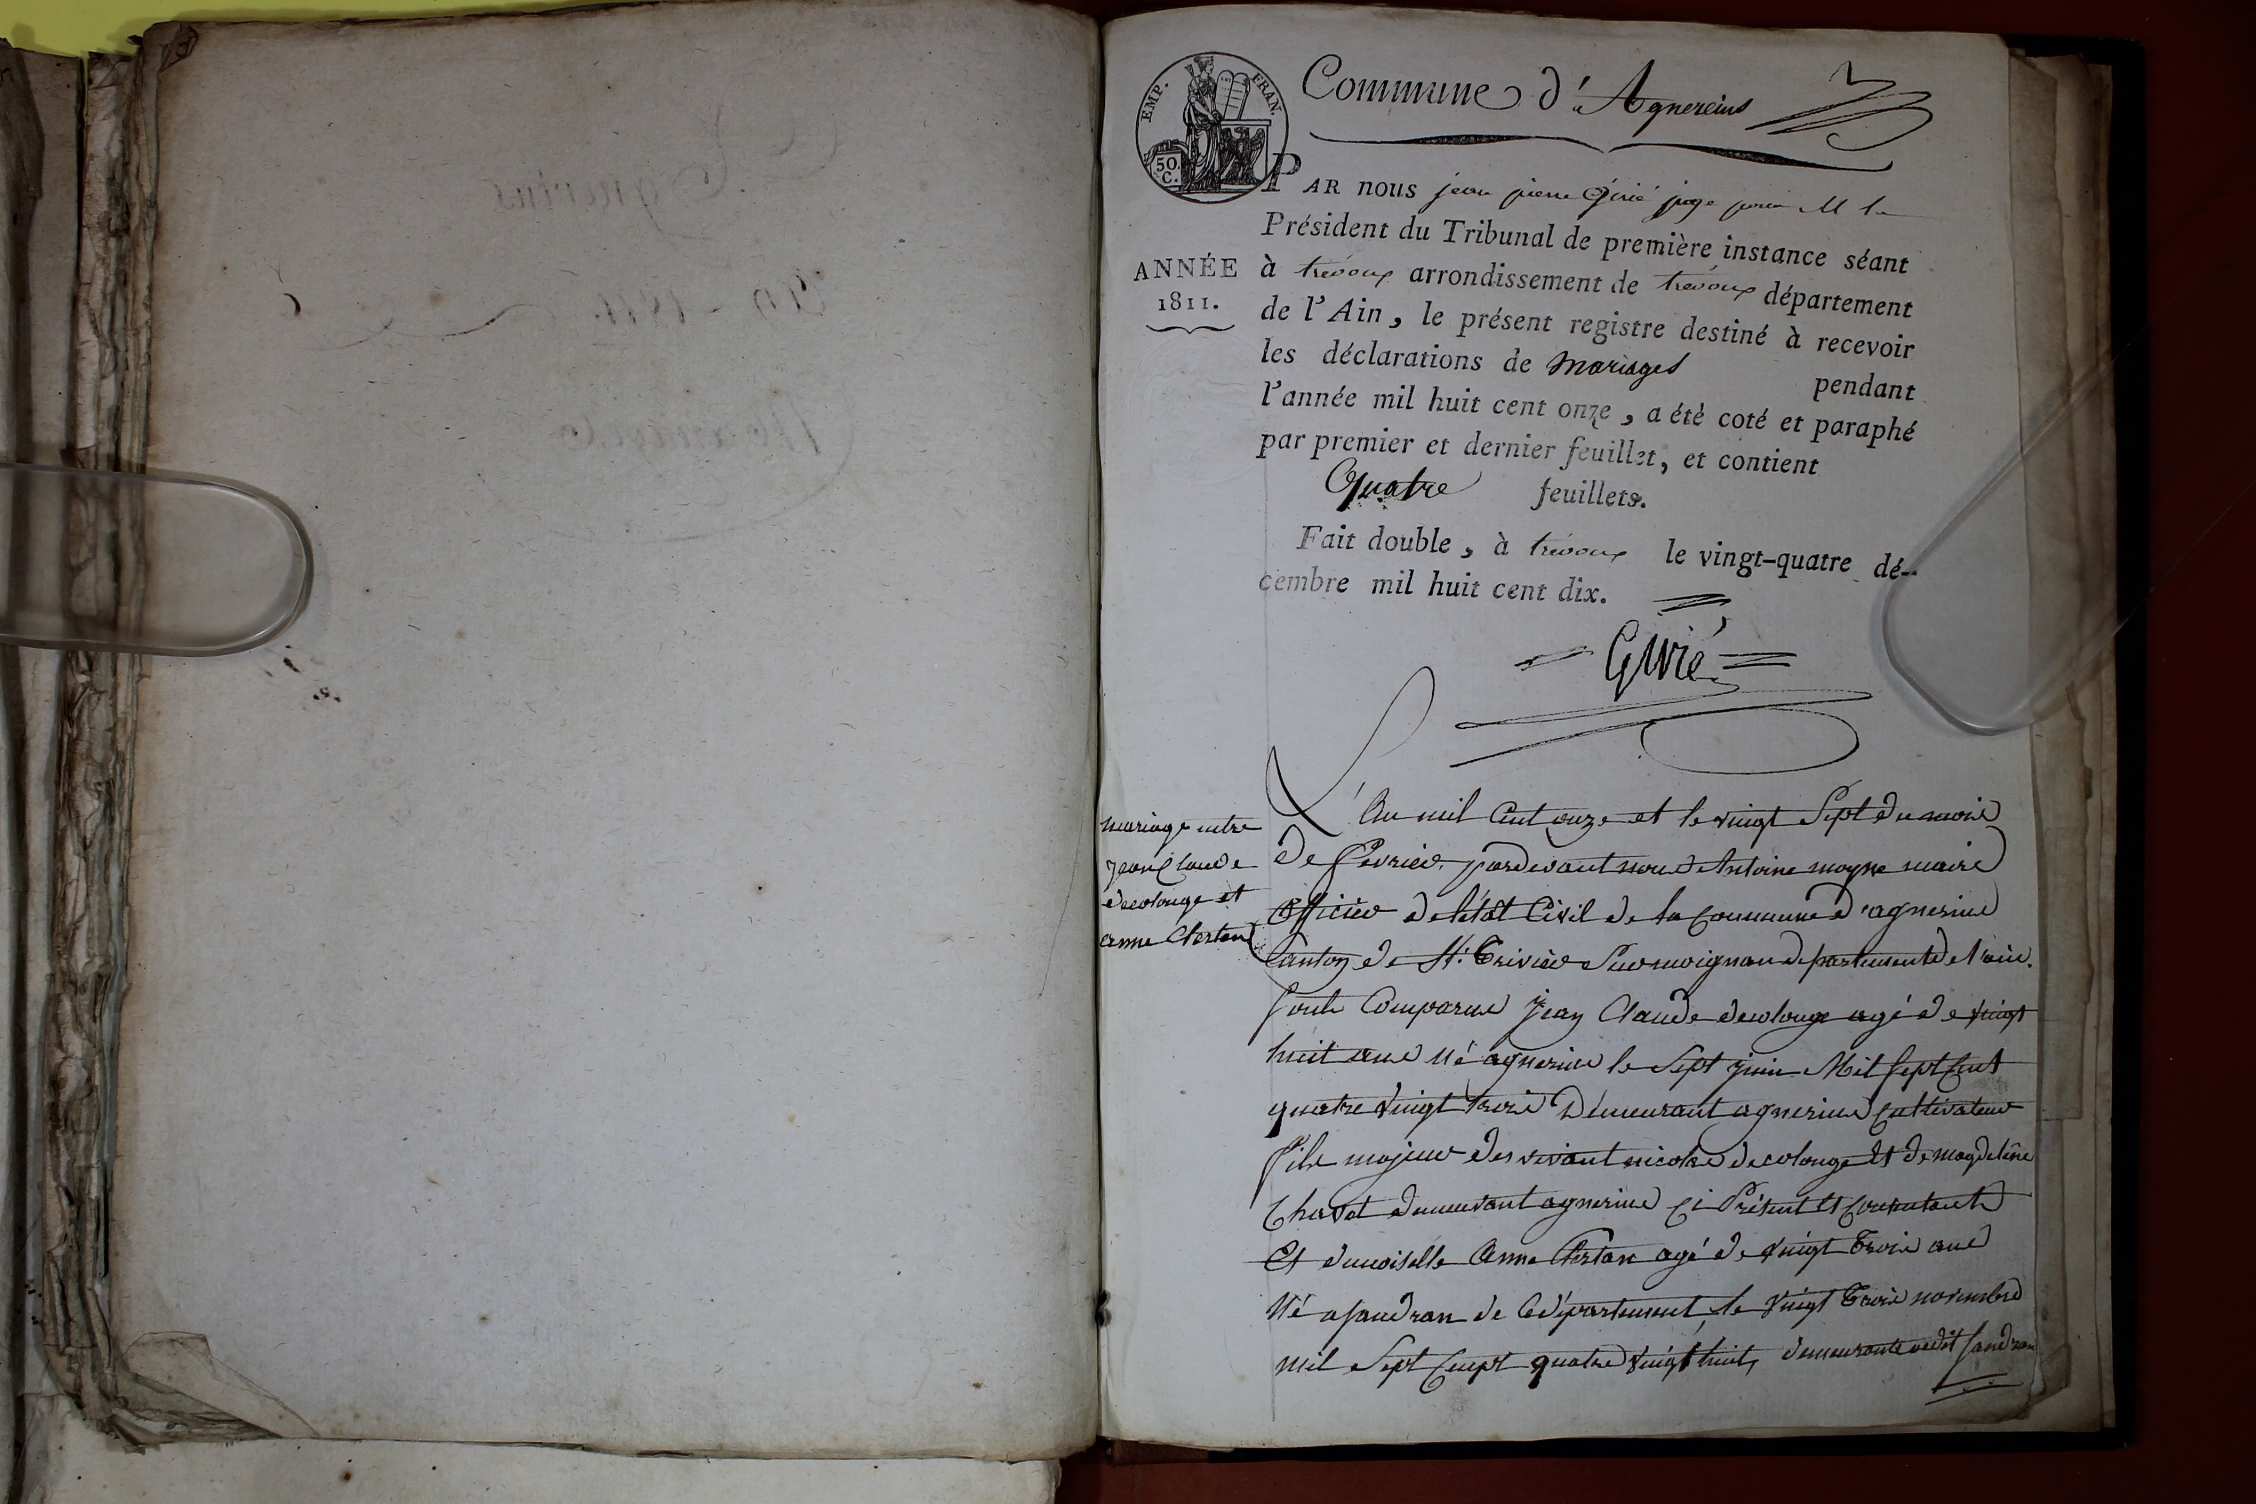 Commune d'Agnereins
EMP. FRAN.
50. C.
PAR nous jean pierre Girié juge pour M le
Président du Tribunal de première instance séant
ANNÉE
1811.
à trévoux arrondissement de trévoux département
de l'Ain, le présent registre destiné à recevoir
les déclarations de mariages pendant
l'année mil huit cent onze, a été coté et paraphé
par premier et dernier feuillet, et contient
Quatre feuillets.
Fait double, à trévoux le vingt-quatre dé-
cembre mil huit cent dix.
Girié
mariage entre
jean Claude
decolonge et
anne Chertan
L'An mil Cent onze et le vingt Sept du mois
de fevrier, pardevant nous Antoine moyne maire
officier de létat Civil de la Commune d'agnerins
Canton de St. Trivier Sur moignan departement de l'ain.
Sont Comparus jean Claude decolonge agé de vingt
huit ans né agnerins le Sept juin Mil Sept Cent
quatre vingt trois Demeurant agnerins Cultivateur
fils majeur des vivant nicolas decolonge et de magdelêne
Chavet demeurant agnerins Ci Présent et Consentant
Et demoiselle Anne Chertan agé de vingt trois ans
Né a Sandran de Cedépartement, le vingt trois novembre
mil Sept Cenpt quatre vingt huit, demeurante audit Sandran